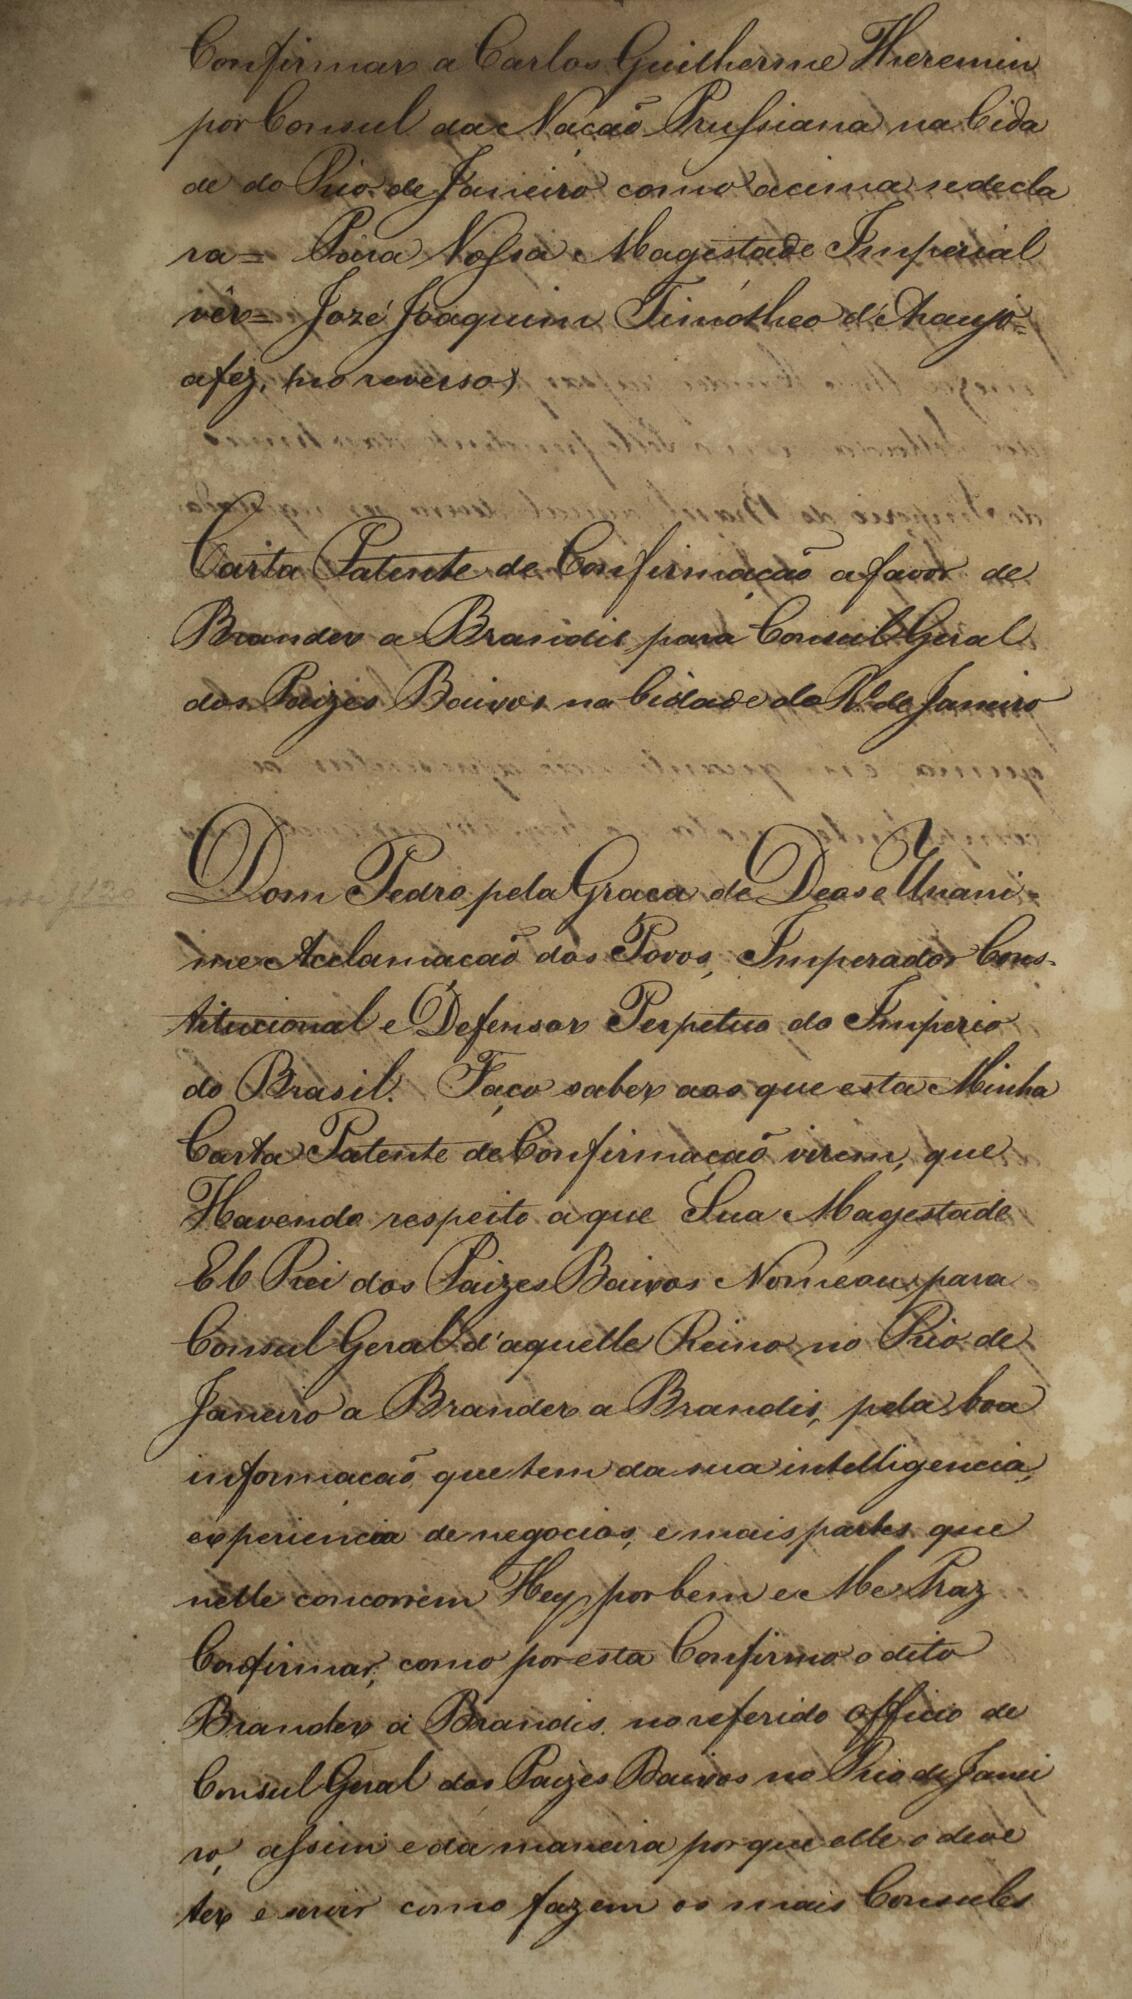 Confirmar a Carlos Guilherme Theremin
por Consul da Nação Prussiana na Cida
de do Rio de Janeiro como acima se decla
ra = Para Vossa Magestade Imperial
vêr = Jozé Joaquim Timótheo d'Araujo =
a fez, (no reverso)
Carta Patente de Confirmação a favor de
Brander a Brandis para Consul Geral
dos Paizes Baixos na Cidade do R.º de Janeiro
Dom Pedro pela Graca de Deos e Unani-
me Acclamacaõ dos Povos, Imperador Cons-
titucional e Defensor Perpetuo do Imperio
do Brasil. Faço saber aos que esta Minha
Carta Patente de Confirmação virem, que
Havendo respeito a que Sua Magestade
El Rei dos Paizes Baixos Nomeou para
Consul Geral d'aquelle Reino no Rio de
Janeiro a Brander a Brandis, pela boa
informacaõ que tem da sua intelligencia,
experiencia de negocios, e mais partes que
nelle concorrem Hey por bem e Me Praz
Confirmar, como por esta Confirmo o dito
Brander a Brandis no referido Officio de
Consul Geral dos Paizes Baixos no Rio de Janei
ro, assim e da maneira porque elle o deve
ter e servir como fazem os mais Consules